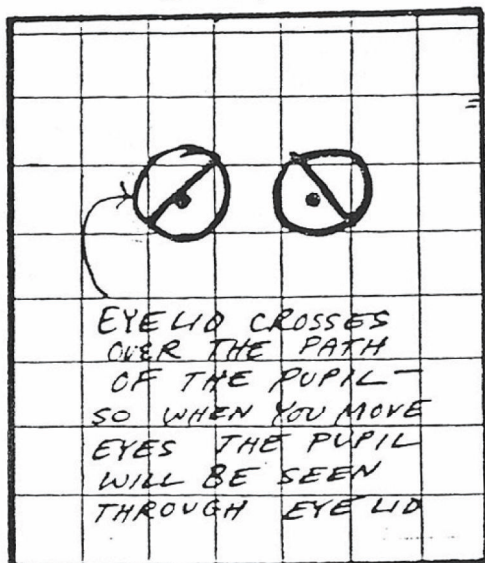 EYELID CROSSES
OVER THE PATH
OF THE PUPIL—
SO WHEN YOU MOVE
EYES THE PUPIL
WILL BE SEEN
THROUGH EYELID